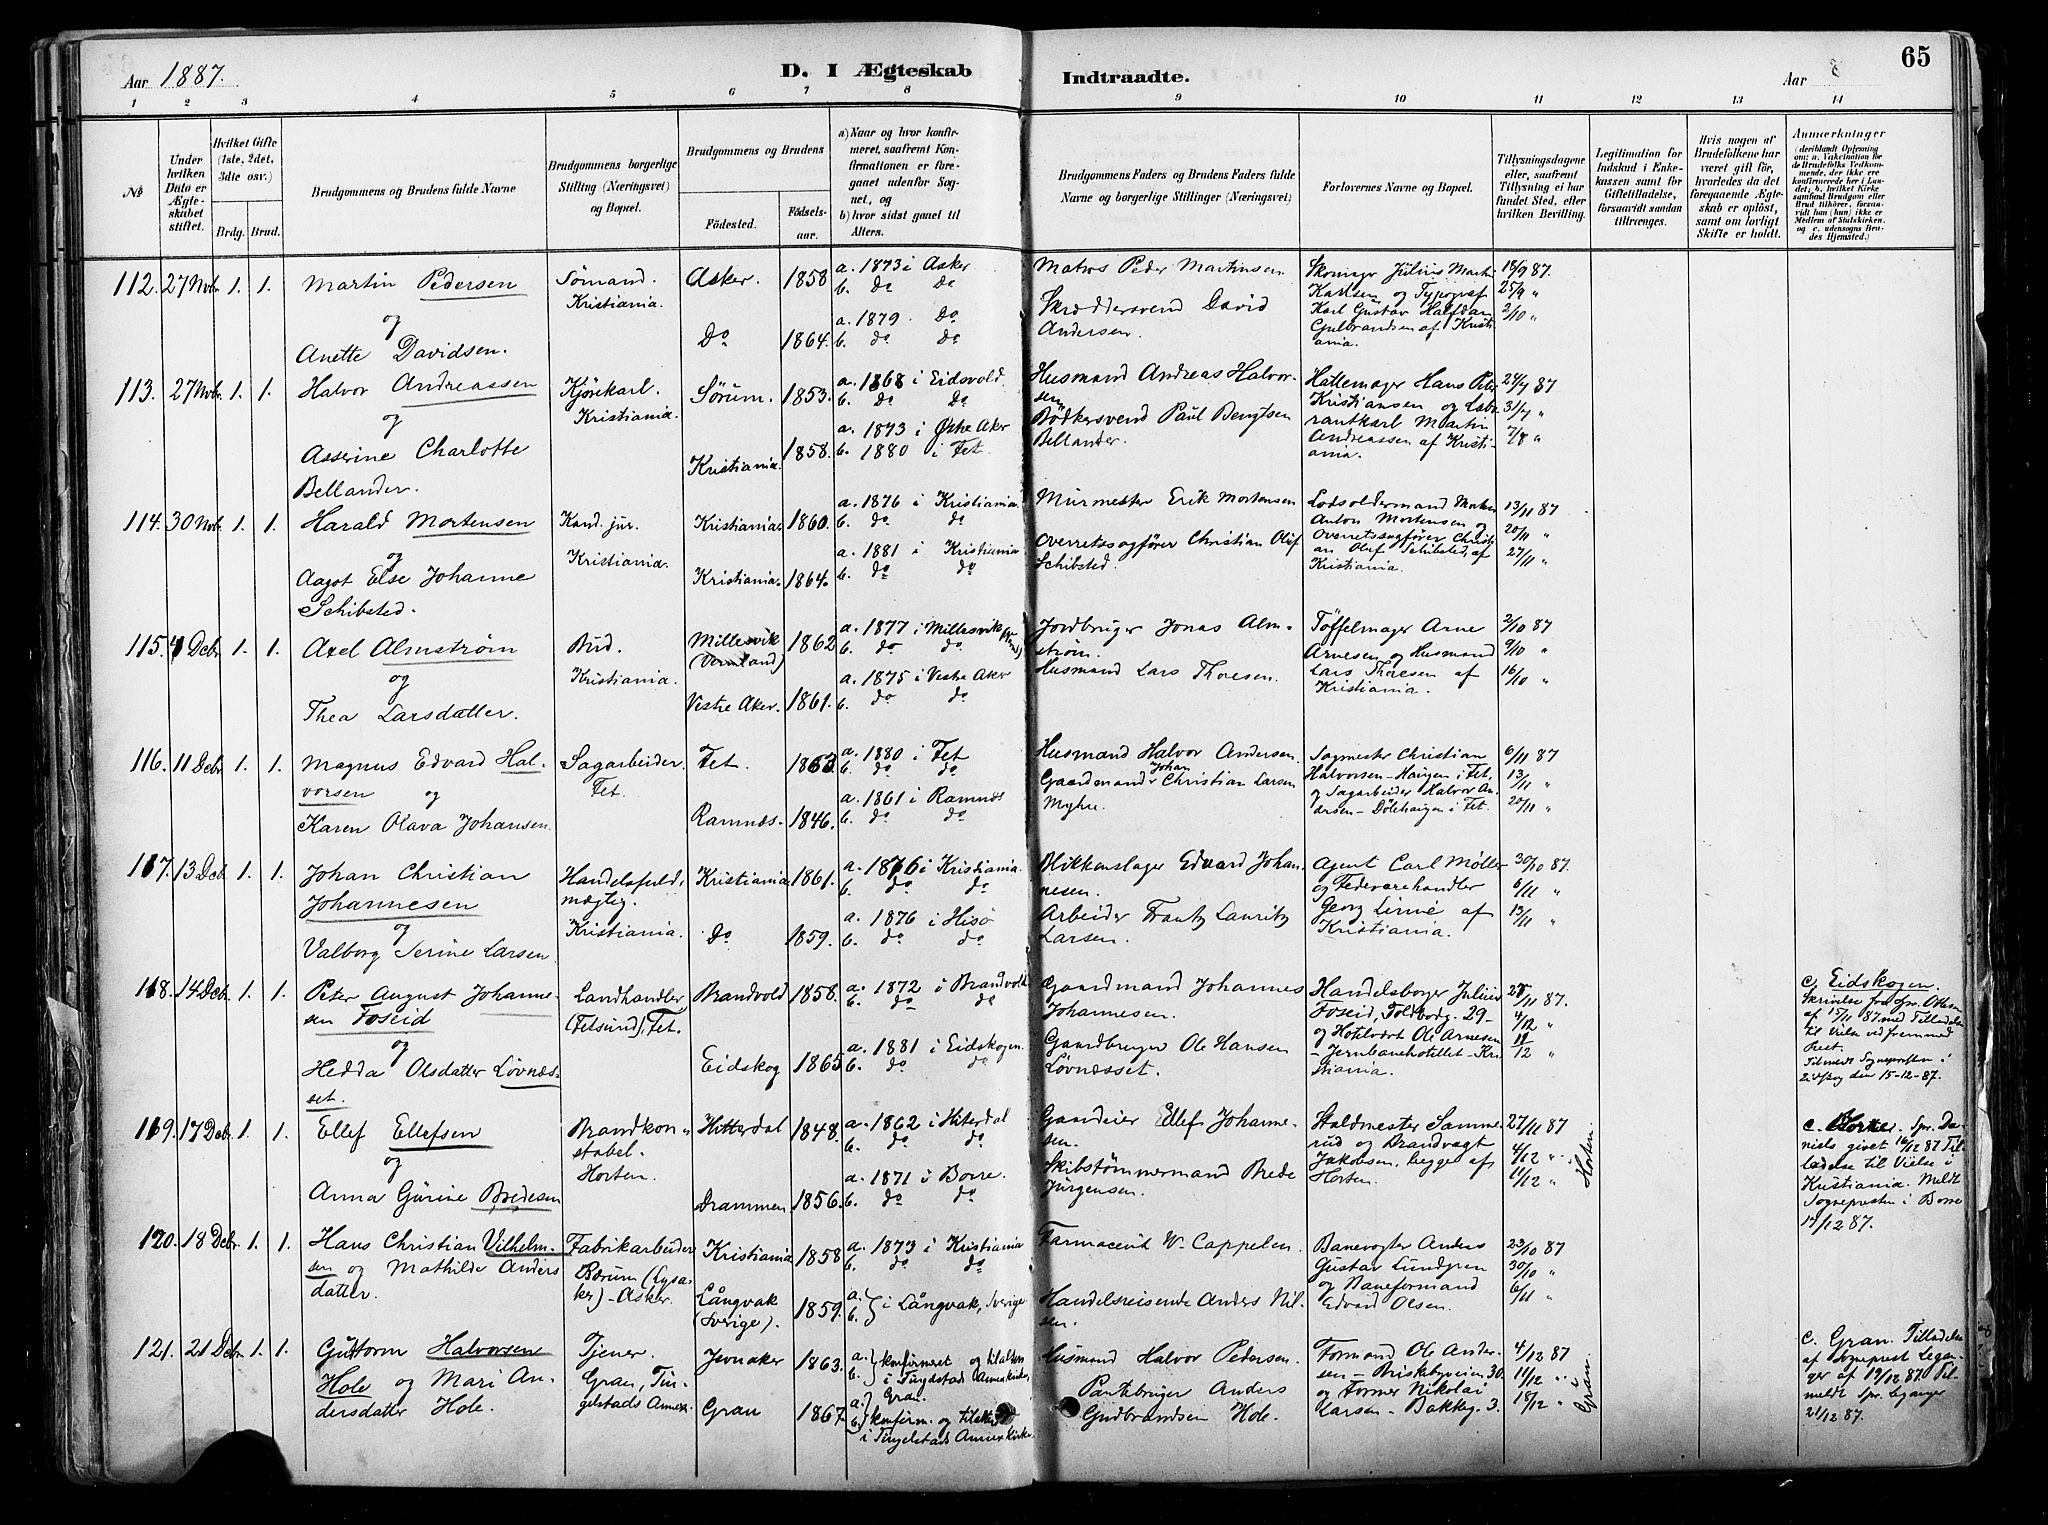 Aar 1887.
D. I Ægteskab
Indtraadte.
Aar 8
65
1 2 3 4 5 6 7 8 9 10 11 12 13 14
No
Under hvilken Dato er Ægteskabet stiftet.
Hvilket Gifte (1ste, 2det, 3dte osv.)
Brdg. Brud.
Brudgommens og Brudens fulde Navne
Brudgommens borgerlige Stilling (Næringsvei) og Bopæl.
Brudgommens og Brudens
Fødested.
Fødselsaar.
a) Naar og hvor konfirmeret, saafremt Konfirmationen er foregaaet udenfor Sognet, og
b) hvor sidst gaaet til Alters.
Brudgommens Faders og Brudens Faders fulde Navne og borgerlige Stillinger (Næringsvei)
Forlovernes Navne og Bopæl.
Tillysningsdagene eller, saafremt Tillysning ei har fundet Sted, efter hvilken Bevilling.
Legitimation for Indskud i Enkekassen samt for Giftetilladelse, forsaavidt saadan tiltrænges.
Hvis nogen af Brudefolkene har været gift før, hvorledes da det foregaaende Ægteskab er opløst, samt om lovligt Skifte er holdt.
Anmærkninger (deriblandt Oplysning om: a. Vakcination for de Brudefolks Vedkommende, der ikke ere konfirmerede her i Landet; b. hvilket Kirkesamfund Brudgom eller Brud tilhører, forsaavidt han (hun) ikke er Medlem af Statskirken, og c. udensogns Brudes Hjemsted.)
112. 27 Nvbr. 1. 1. Martin Pedersen
og
Anette Davidsen.
Sømand.
Kristiania.
Asker. 1858
Do 1864.
a. 1873 i Asker
b. do do
a. 1879. Do
b. do do
Matros Peder Martinsen
Skræddersvend David
Andersen.
Skomager Julius Marti
Karlsen og Typograf
Karl Gustav Halfdan
Gulbrandsen af Kristi-
ania.
18/9 87.
25/9 "
2/10 "
113. 27 Nvbr. 1. 1. Halvor Andreassen
og
Asserine Charlotte
Bellander.
Kjørekarl.
Kristiania.
Sørum. 1853.
Kristiania. 1858.
a. 1868 i Eidsvold.
b. do do
a. 1873 i Østre Aker
b. 1880 i Fet.
Husmand Andreas Halvor-
sen
Bødkersvend Paul Bengtsen
Bellander.
Hattemager Hans Peter
Kristiansen og Labo
rantkarl Martin
Andreassen af Kristi-
ania.
24/7 87
31/7 "
7/8 "
114. 30 Nvbr. 1. 1. Harald Mortensen
og
Aagot Else Johanne
Schibsted.
Kand. jur.
Kristiania.
Kristiania 1860.
Kristiania. 1864.
a. 1876 i Kristiania.
b. do do
a. 1881 i Kristiania
b. do do
Murmester Erik Mortensen
Overretssagfører Christian Oluf
Schibsted.
Lodsoldermand
Anton Mortensen og
Overretssagfører Christi
an Oluf Schibsted, af
Kristiania.
13/11 87
20/11 "
27/11 "
115. 4 Dcbr 1. 1. Axel Almstrøm
og
Thea Larsdatter.
Bud.
Kristiania.
Millesvik
(Vermland) 1862
Vestre Aker. 1861.
a. 1877 i Millesvik
b. do do
a. 1875 i Vestre Aker
b. do do
Jordbruger Jonas Alm-
strøm.
Husmand Lars Thoresen.
Tøffelmager Arne
Arnesen og Husmand
Lars Thoresen af
Kristiania.
2/10 87
9/10 "
16/10 "
116. 11 Dcbr. 1. 1. Magnus Edvard Hal-
vorsen og
Karen Olava Johansen.
Sagarbeider.
Fet.
Fet. 1863.
Ramnæs. 1846.
a. 1880 i Fet
b. do do
a. 1861 i Ramnæs
b. do do
Husmand Halvor Andersen.
Gaardmand Johan Christian Larsen
Myhre.
Sagmester Christian
Halvorsen-Haugen i Fet,
og Sagarbeider Halvor An-
dersen-Dølehaugen i Fet.
6/11 87
13/11 "
20/11 "
117. 13 Dcbr. 1. 1. Johan Christian
Johannesen
og
Valborg Serine Larsen.
Handelsfuld-
mægtig.
Kristiania.
Kristiania 1861.
Do 1859.
a. 1876 i Kristiania.
b. do do
a. 1876 i Hisø
b. do do
Blikkenslager Edvard Johan
nesen.
Arbeider Frantz Lauritz
Larsen.
Agent Carl Møller
og Fedevarehandler
Georg Linné af
Kristiania.
30/10 87.
6/11 "
13/11 "
118. 14 Dcbr. 1. 1. Peter August Johanne-
sen Foseid
og
Hedda Olsdatter Løvnæs-
set.
Landhandler
(Fetsund), Fet.
Brandvold 1858.
Eidskog 1865
a. 1872 i Brandvold
b. do do
a. 1881 i Eidskogen
b. do do
Gaardmand Johannes
Johannesen.
Gaardbruger Ole Hansen
Løvnæsset.
Handelsborger Julius
Foseid, Toldbodg. 29-
og Hotelvært Ole Arnesen
- Jernbanehotellet - Kri
stiania.
/11 87.
4/12 "
11/12 "
c. Eidskogen.
Skrivelse fra Spr.
af 15/11 87 med Tilladelse
til Vielse ved fremmed
Prest.
Tilmeldt Sognepresten i
Eidskog den 15-12-87.
119. 17 Dcbr. 1. 1. Ellef Ellefsen
og
Anna Gurine Bredesen
Brandkon-
stabel.
Horten.
Hitterdal 1848.
Drammen 1856.
a. 1862 i Hiterdal
b. do do
a. 1871 i Borre.
b. do do
Gaardeier Ellef Johanne-
sen.
Skibstømmermand Brede
Jürgensen.
Staldmester Samme-
rud og Brandvagt
Jakobsen, begge af
Horten.
27/11 87
4/12 "
11/12 "
Horten.
c. Spr. Da-
niels givet 16/12 87 Til-
ladelse til Vielse i
Kristiania. Meldt
Sognepresten i Borre
17/12 87.
120. 18 Dcbr. 1. 1. Hans Christian Vilhelm-
sen og Mathilde Anders
datter.
Fabrikarbeider
Bærum (Lysa-
ker) - Asker.
Kristiania 1858
Långvak
(Sverige). 1859.
a. 1873 i Kristiania
b. do do
a. b. } i Långvak, Sverige
Farmaceut W. Cappelen.
Handelsreisende Anders Nil-
sen.
Banevogter Anders
Gustav Lundgren
og Baneformand
Edvard Olsen.
23/10 87
30/10 "
6/11 "
121. 21 Dcbr. 1. 1. Guttorm Halvorsen
Hole og Mari An-
dersdatter Hole.
Tjener.
Gran, Tin-
gelstads Annex.
Jevnaker 1863.
Gran 1867.
a. b. } konfirmeret og tilalters
i Tingelstads Annexkirke,
Gran.
a. b. } konfirm. og tilalters
i Tingelstads Annexkirke.
Husmand Halvor Pedersen.
Pantebruger Anders
Gudbrandsen Hole.
Formand Ole Ander
sen - Briskebyveien 30.
og Former Nikolai
Larsen - Bakkeg. 3.
4/12 87
11/12 "
18/12 "
i Gran.
c. Gran. Tilladelse
af Sogneprest Legan-
ger af 19/12 87. Til-
meldt Spr. Leganger
21/12 87.